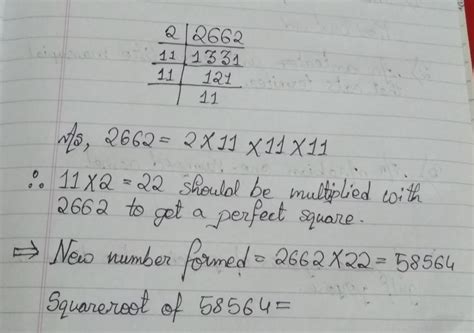 2 | 2662
11 | 1331
11 | 121
11
2662 = 2×11×11×11
∴ 11×2 = 22 should be multiplied with
2662 to get a perfect square.
⇒ New number formed = 2662×22 = 58564
Squareroot of 58564=